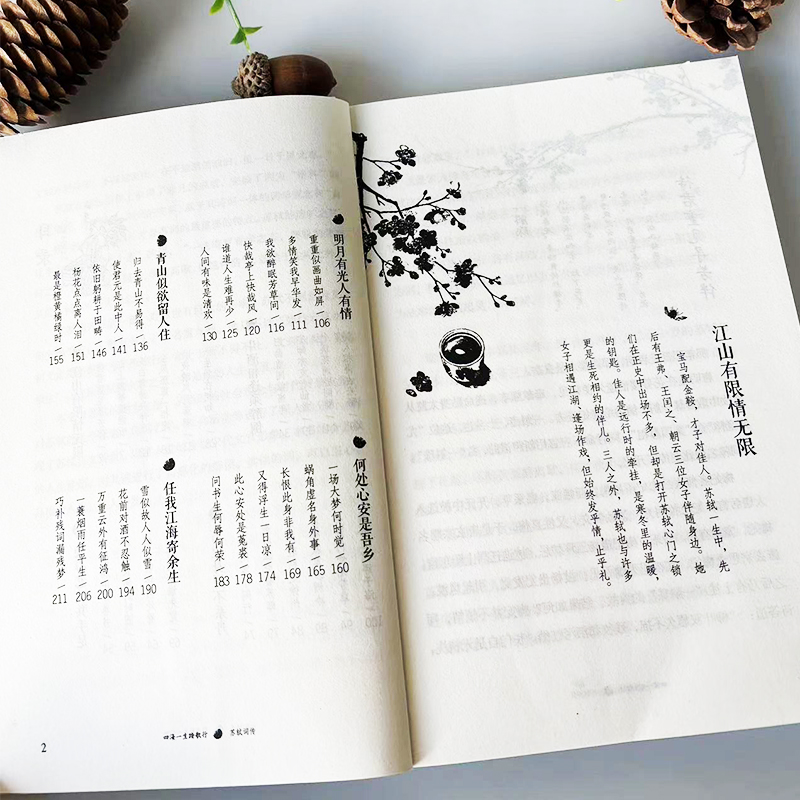 明月有光人有情
重重似画曲如屏 106
多情笑我早华发 111
我欲醉眠芳草间 116
快哉亭上快哉风 120
谁道人生难再少 125
人间有味是清欢 130
青山似欲留人住
归去青山不易得 136
使君元是此中人 141
依旧躬耕于田畴 146
杨花点点离人泪 151
最是橙黄橘绿时 155
何处心安是吾乡
一场大梦何时觉 160
蜗角虚名身外事 165
长恨此身非我有 169
又得浮生一日凉 174
此心安处是菟裘 178
问书生何辱何荣 183
任我江海寄余生
雪似故人人似雪 190
花前对酒不忍触 194
万重云外有征鸿 200
一蓑烟雨任平生 206
巧补残词漏残梦 211
2
四海一生踏歌行 苏轼词传
江山有限情无限
宝马配金鞍，才子对佳人。苏轼一生中，先
后有王弗、王闰之、朝云三位女子伴随身边。她
们在正史中出场不多，但却是打开苏轼心门之锁
的钥匙。佳人是远行时的牵挂，是寒冬里的温暖，
更是生死相约的伴儿。三人之外，苏轼也与许多
女子相遇江湖、逢场作戏，但始终发乎情，止乎礼。